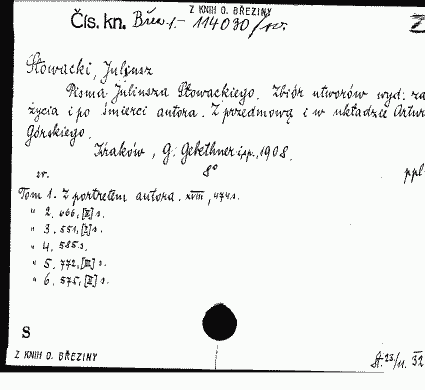 Z KNIH O. BŘEZINY
Čís. kn. Břez 1.- 114030/sv.
Słowacki, Juljusz
Pisma Juljusza Słowackiego. Zbiór utworów wyd. za
życia i po śmierci autora. Z przedmową i w układzie Artur
Górskiego.
Kraków, G. Gebethner i sp., 1908.
8°
ppl
Tom 1. Z portretem autora. XVIII, 474 s.
" 2. 666, [II] s.
" 3. 551, [I] s.
" 4. 585 s.
" 5. 772, [III] s.
" 6. 575, [II] s.
S
Z KNIH O. BŘEZINY
A. 23/11. 32